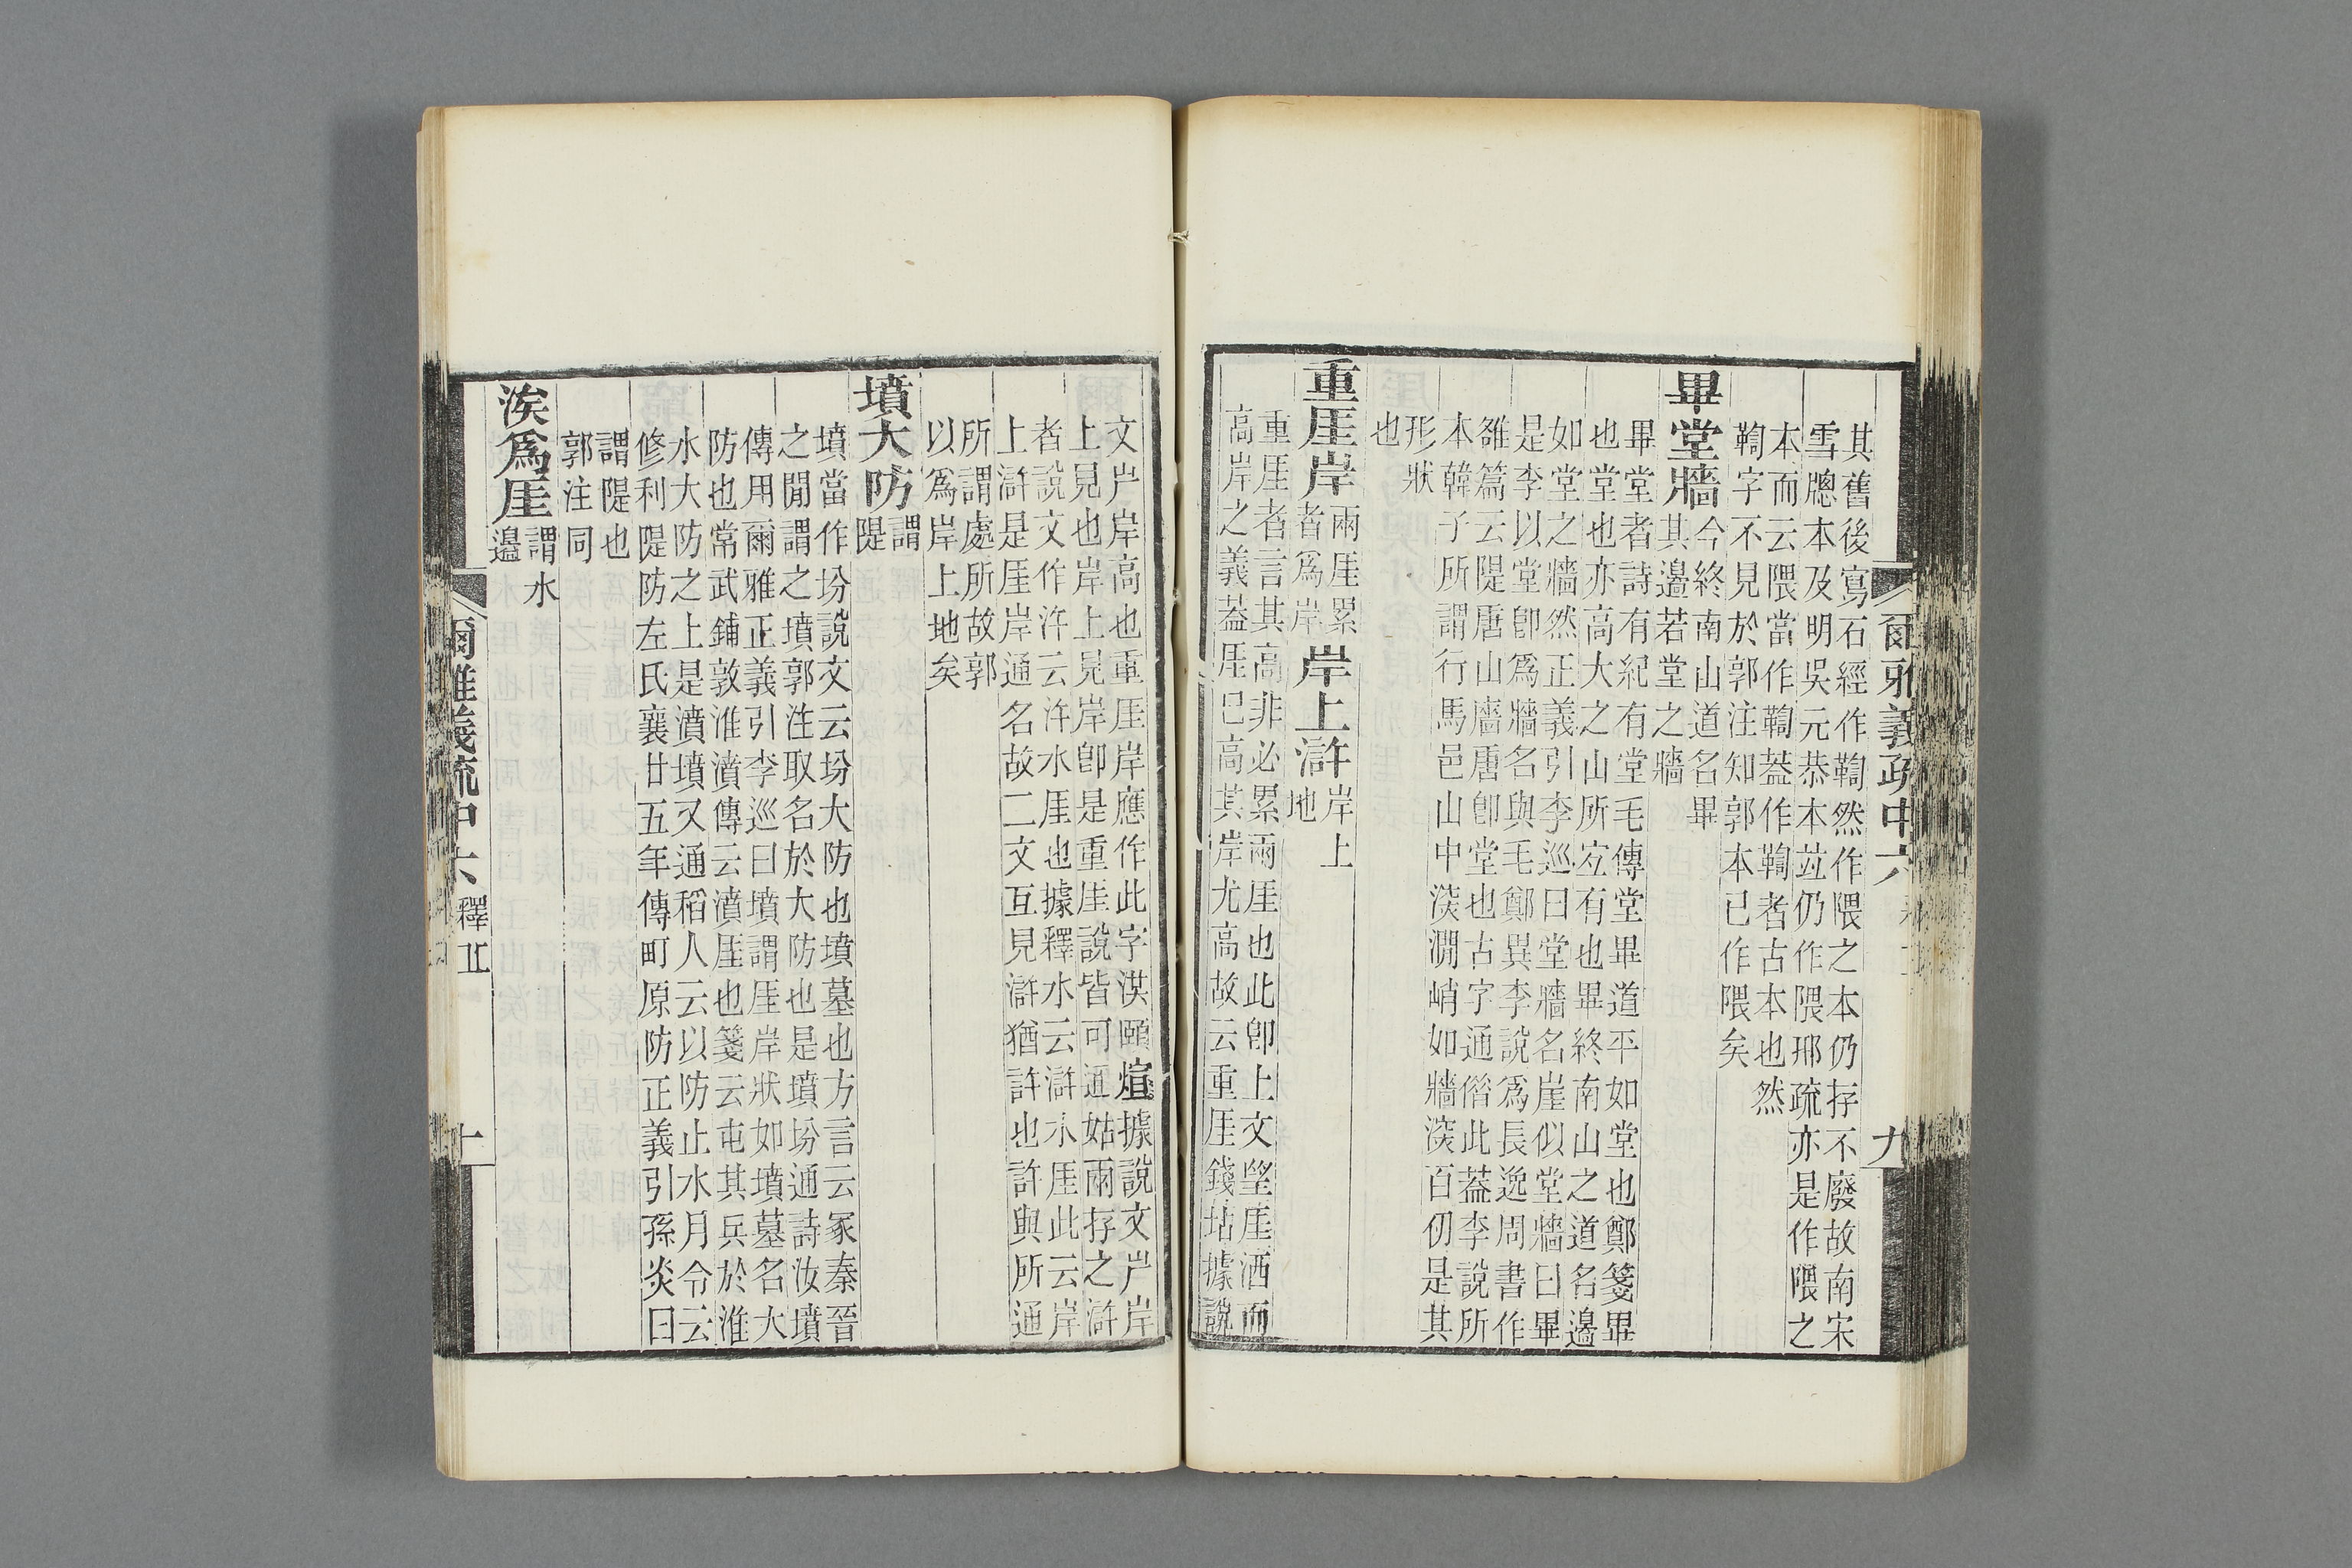 其舊後寫石經作鞫然作隈之本仍存不廢故南宋
雪牕本及明吳元恭本竝仍作隈邢疏亦是作隈之
本而云隈當作鞫葢作鞫者古本也然
鞫字不見於郭注知郭本已作隈矣
畢堂牆
今終南山道名畢
其邊若堂之牆
畢堂者詩有紀有堂毛傳堂畢道平如堂也鄭箋畢
也堂也亦高大之山所宐有也畢終南山之道名邊
如堂之牆然正義引李巡曰堂牆名崖似堂牆曰畢
是李以堂卽爲牆名與毛鄭異李說爲長逸周書作
雒篇云隄唐山廧唐卽堂也古字通偺此葢李說所
本韓子所謂行馬邑山中渶澗峭如牆渶百仞是其
形狀
也
重厓岸
兩厓累
者爲岸
岸上滸
岸上
地
重厓者言其高非必累兩厓也此卽上文望厓洒而
高岸之義葢厓已高其岸尤高故云重厓錢坫據說
文屵岸高也重厓岸應作此字淇頤煊據說文屵岸
上見也岸上見岸卽是重厓說皆可通姑兩存之滸
者說文作汻云汻水厓也據釋水云滸水厓此云岸
上滸是厓岸通名故二文互見滸猶許也許與所通
所謂處所故郭
以爲岸上地矣
墳大防
謂
隄
墳當作坋說文云坋大防也墳墓也方言云冢秦晉
之閒謂之墳郭注取名於大防也是墳坋通詩汝墳
傳用爾雅正義引李巡曰墳謂厓岸狀如墳墓名大
防也常武鋪敦淮濆傳云濆厓也箋云屯其兵於淮
水大防之上是濆墳又通稻人云以防止水月令云
修利隄防左氏襄廿五年傳町原防正義引孫炎曰
謂隄也
郭注同
涘爲厓
謂水
邊
爾雅義疏中六 釋丘 十
爾雅義疏中六 九